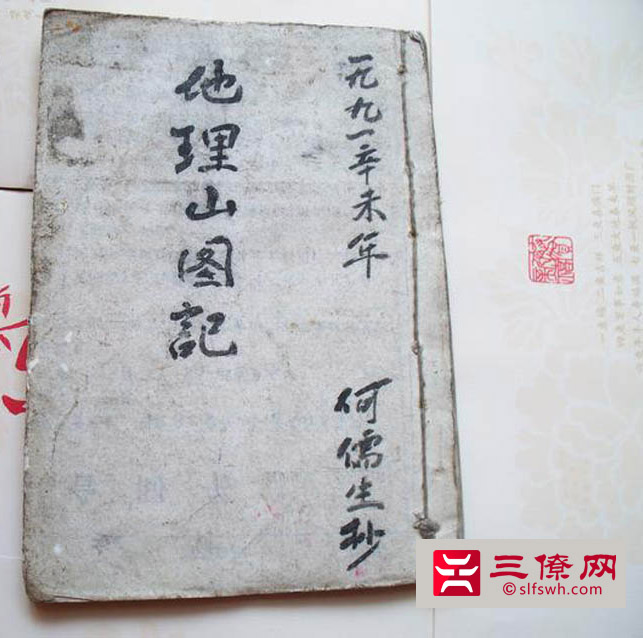 一九九一辛未年
何儒生抄
他理山图記
三僚网
©slfswh.com